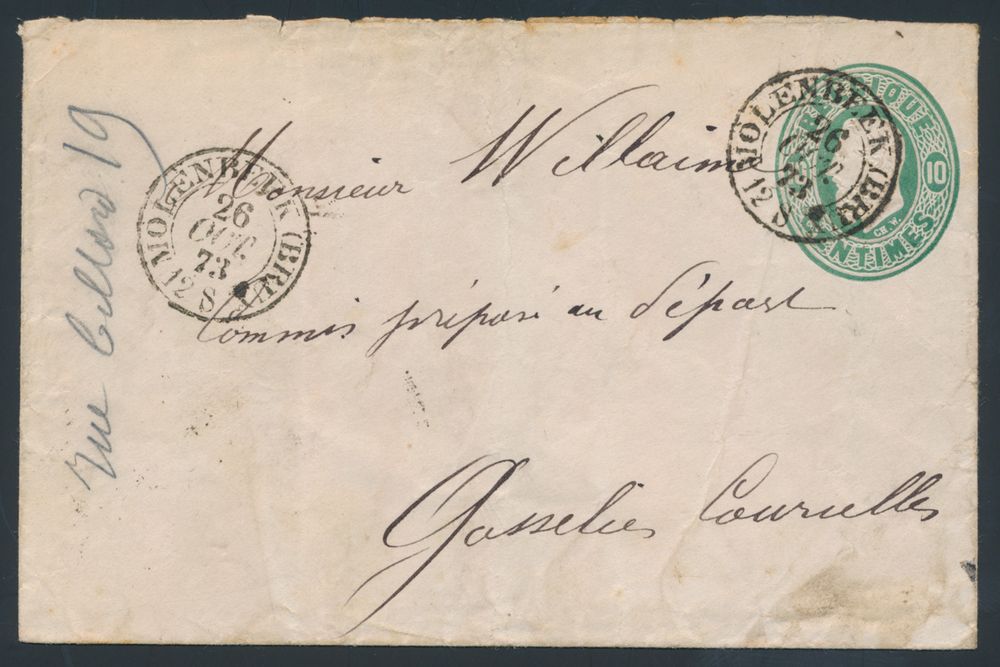 Monsieur Willaim
Commis préposé au départ
Gosselies Courcelles
rue
19
MOLENBEEK (BRUX
26
OCT.
73
12 S
MOLENBEEK (BRUX
26
OCT.
73
12 S
10
CENTIMES
CH. W.